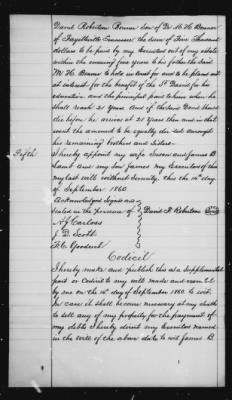 David Robertson Bonner son of Dr. W. H. Bonner
of Fayetteville Tennessee the sum of Five Thousand
dollars to be paid by my Executors out of my estate
within the ensuing five years to his father the said
W. H. Bonner to hold in trust for and to be placed out
at interest for the benefit of the sd David for his
education and the principal paid to him when he
shall reach 21 years and if the said David should
die before he arrives at 21 years then and in that
event the amount to be equally divided amongst
his remaining brothers and sisters.
Fifth I hereby appoint my wife Susan and James B.
and my Son James my Executors of this
my last will without security, this the 14th day
of September 1860
Acknowledged Signed and
Sealed in the presence of David F. Robertson
A. J. Carloss
J. D. Scott
F. C. Goodrich
Codicil
I hereby make and publish this as a Supplemental
part or Codicil to my will made and executed
by me on the 14th day of September 1860 to wit.
In case it shall become necessary at my death
to sell any of my property for the payment of
my debts I hereby direct my Executors named
in the will of the above date to wit James B.